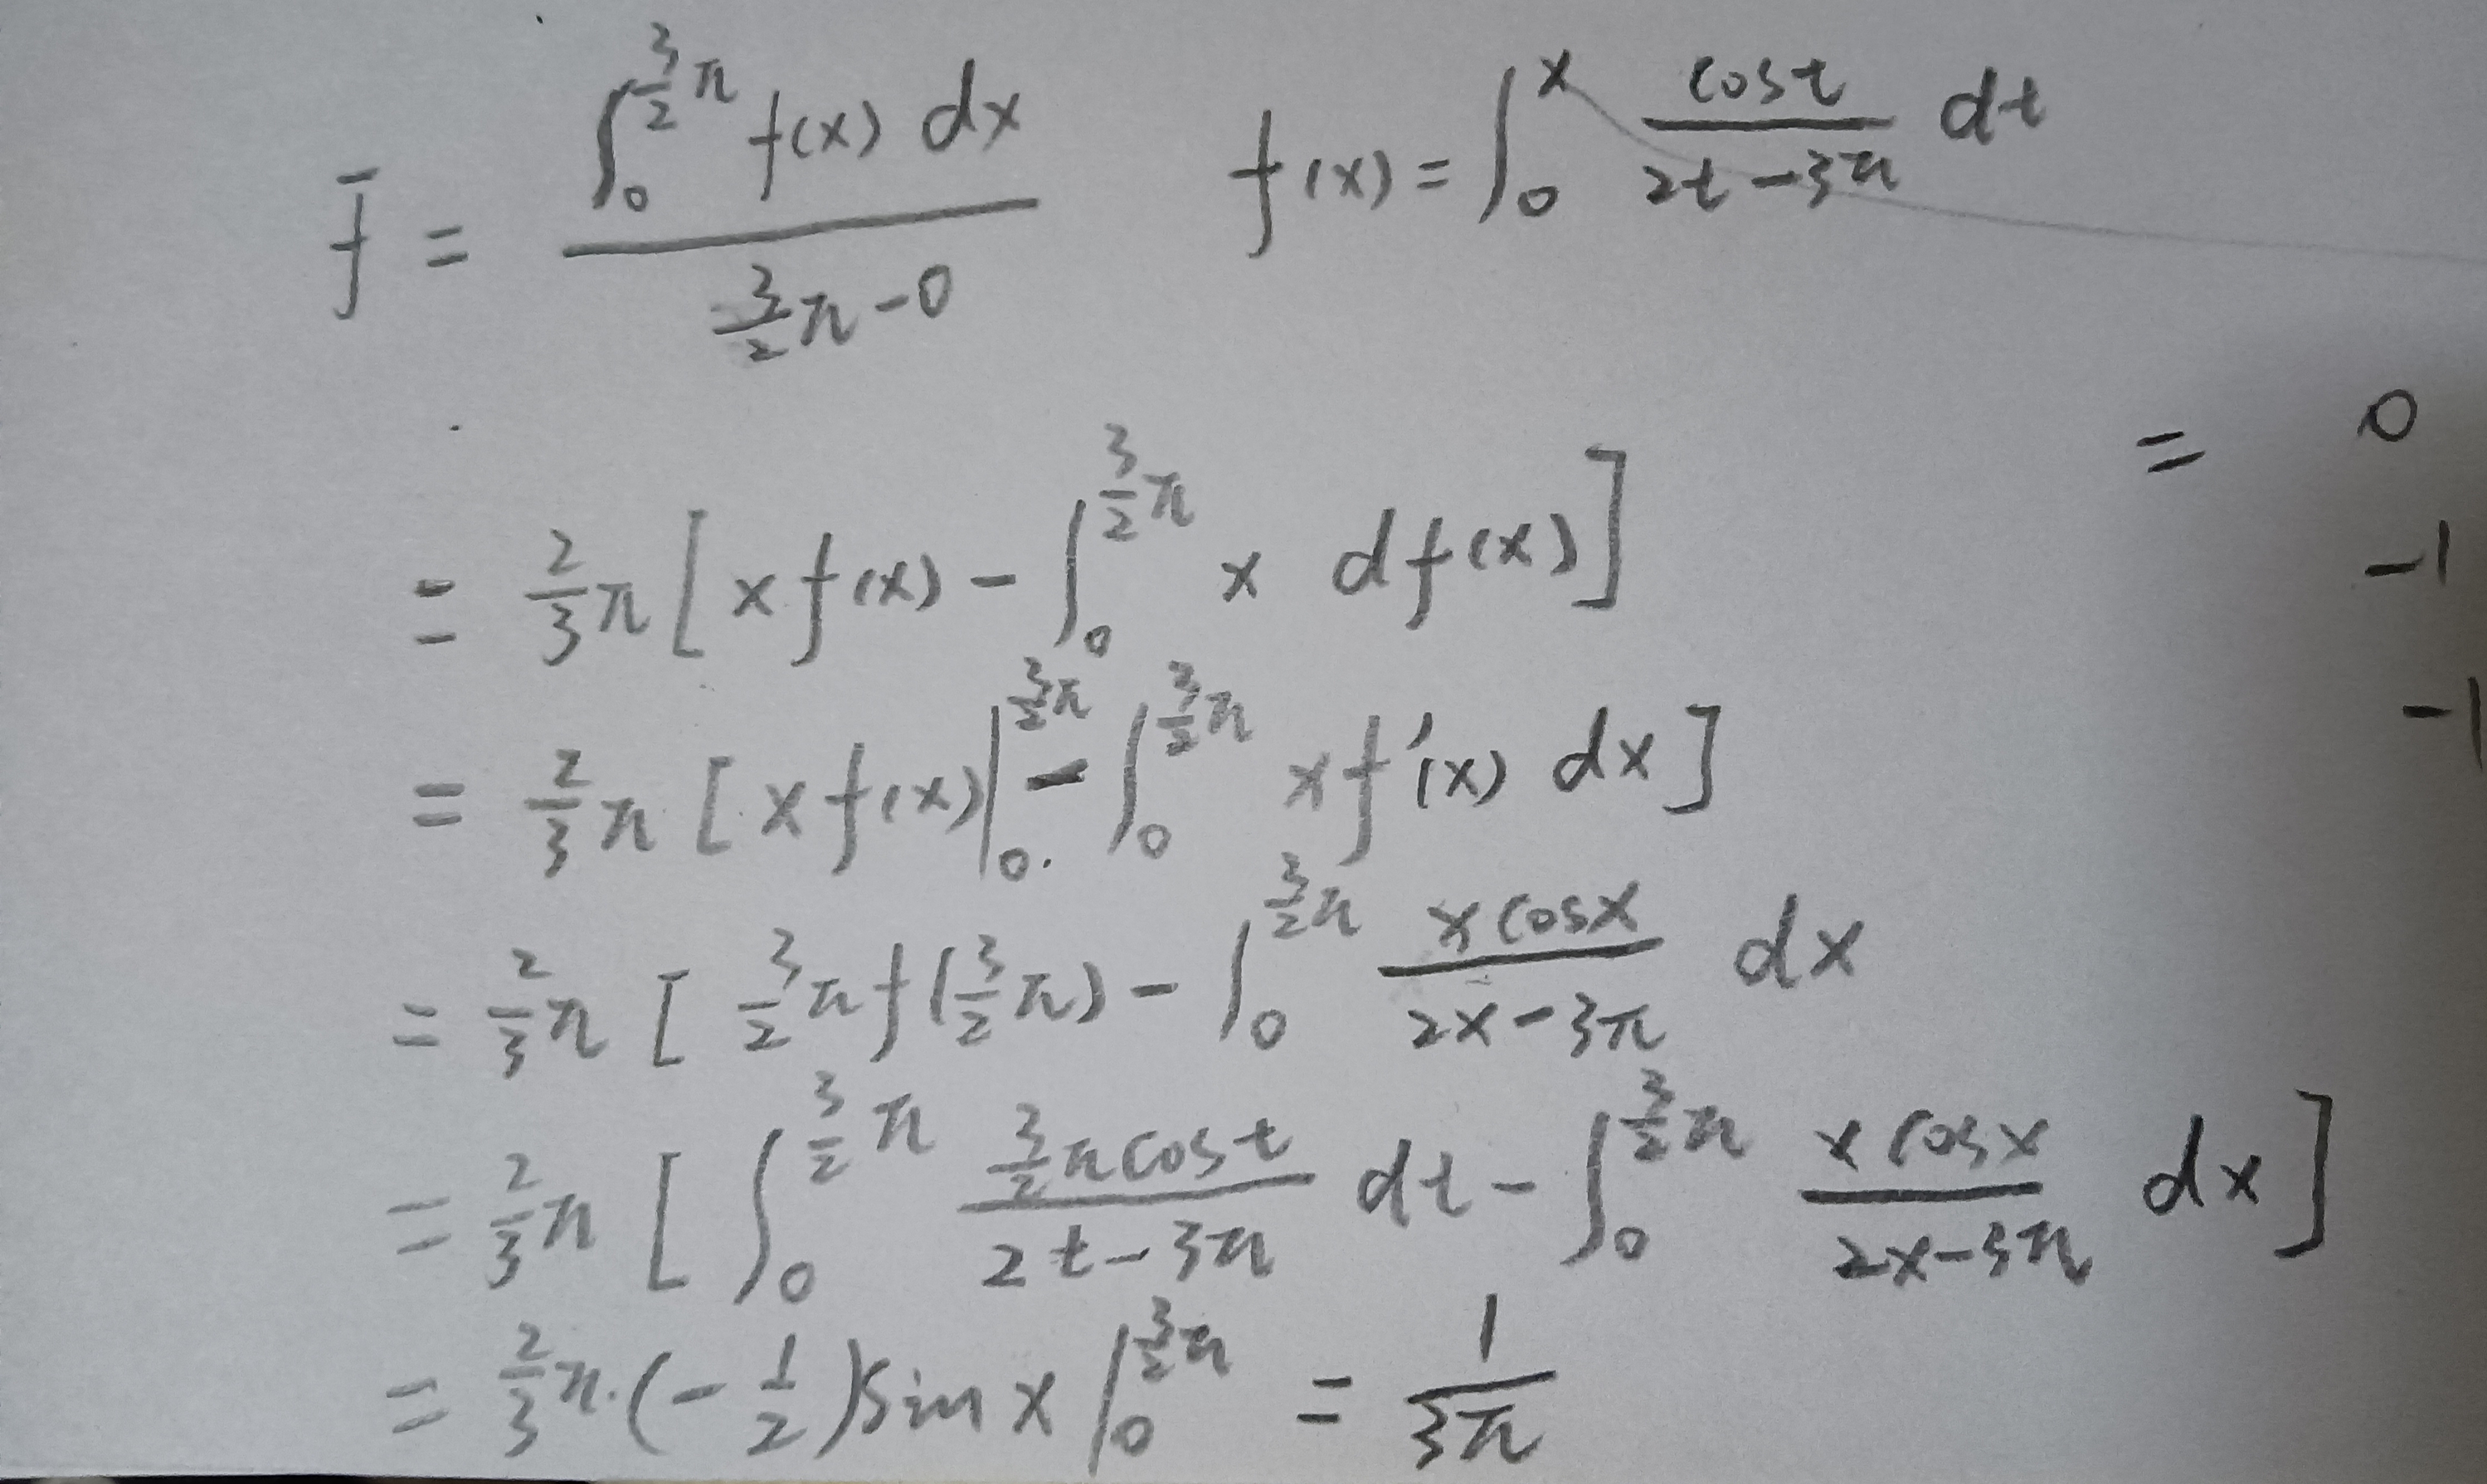 f̄ = \frac{\int_0^{\frac{3}{2}π} f(x) dx}{\frac{3}{2}π - 0}    f(x) = \int_0^x \frac{cost}{2t-3π} dt
= 0
-1
-1
= \frac{2}{3}π [ x f(x) - \int_0^{\frac{3}{2}π} x df(x) ]
= \frac{2}{3}π [ x f(x) |_0^{\frac{3}{2}π} - \int_0^{\frac{3}{2}π} x f'(x) dx ]
= \frac{2}{3}π [ \frac{3}{2}π f(\frac{3}{2}π) - \int_0^{\frac{3}{2}π} \frac{x cosx}{2x-3π} dx
= \frac{2}{3}π [ \int_0^{\frac{3}{2}π} \frac{\frac{3}{2}π cost}{2t-3π} dt - \int_0^{\frac{3}{2}π} \frac{x cosx}{2x-3π} dx ]
= \frac{2}{3}π · (-\frac{1}{2}) sin x |_0^{\frac{3}{2}π} = \frac{1}{3π}